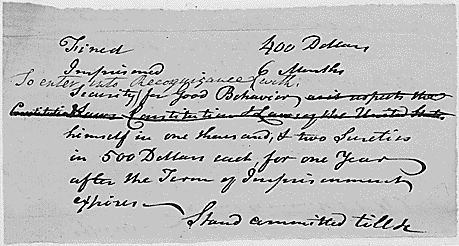 Fined 400 Dollars
Imprisoned 6 Months
So enter into Recognizance with
Security for Good Behavior as it respects the
Constitution & Laws Constitution & Laws of the United States
himself in one thousand, & two Sureties
in 500 Dollars each, for one Year
after the Term of Imprisonment
expires —
Stand committed till &c